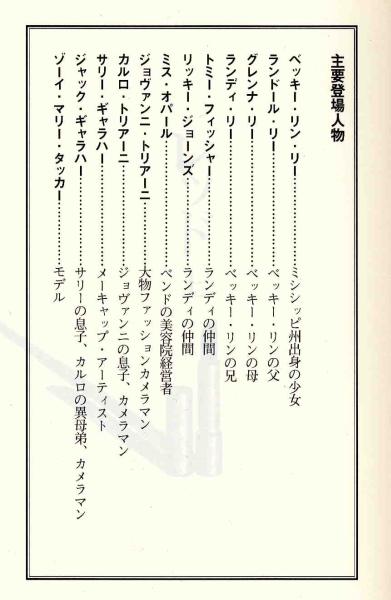 主要登場人物
ベッキー・リン・リー……………………ミシシッピ州出身の少女
ランドール・リー……………………ベッキー・リンの父
グレンナ・リー……………………ベッキー・リンの母
ランディ・リー……………………ベッキー・リンの兄
トミー・フィッシャー……………………ランディの仲間
リッキー・ジョーンズ……………………ランディの仲間
ミス・オパール……………………ベンドの美容院経営者
ジョヴァンニ・トリアーニ……………………大物ファッションカメラマン
カルロ・トリアーニ……………………ジョヴァンニの息子、カメラマン
サリー・ギャラハー……………………メーキャップ・アーティスト
ジャック・ギャラハー……………………サリーの息子、カルロの異母弟、カメラマン
ゾーイ・マリー・タッカー……………………モデル